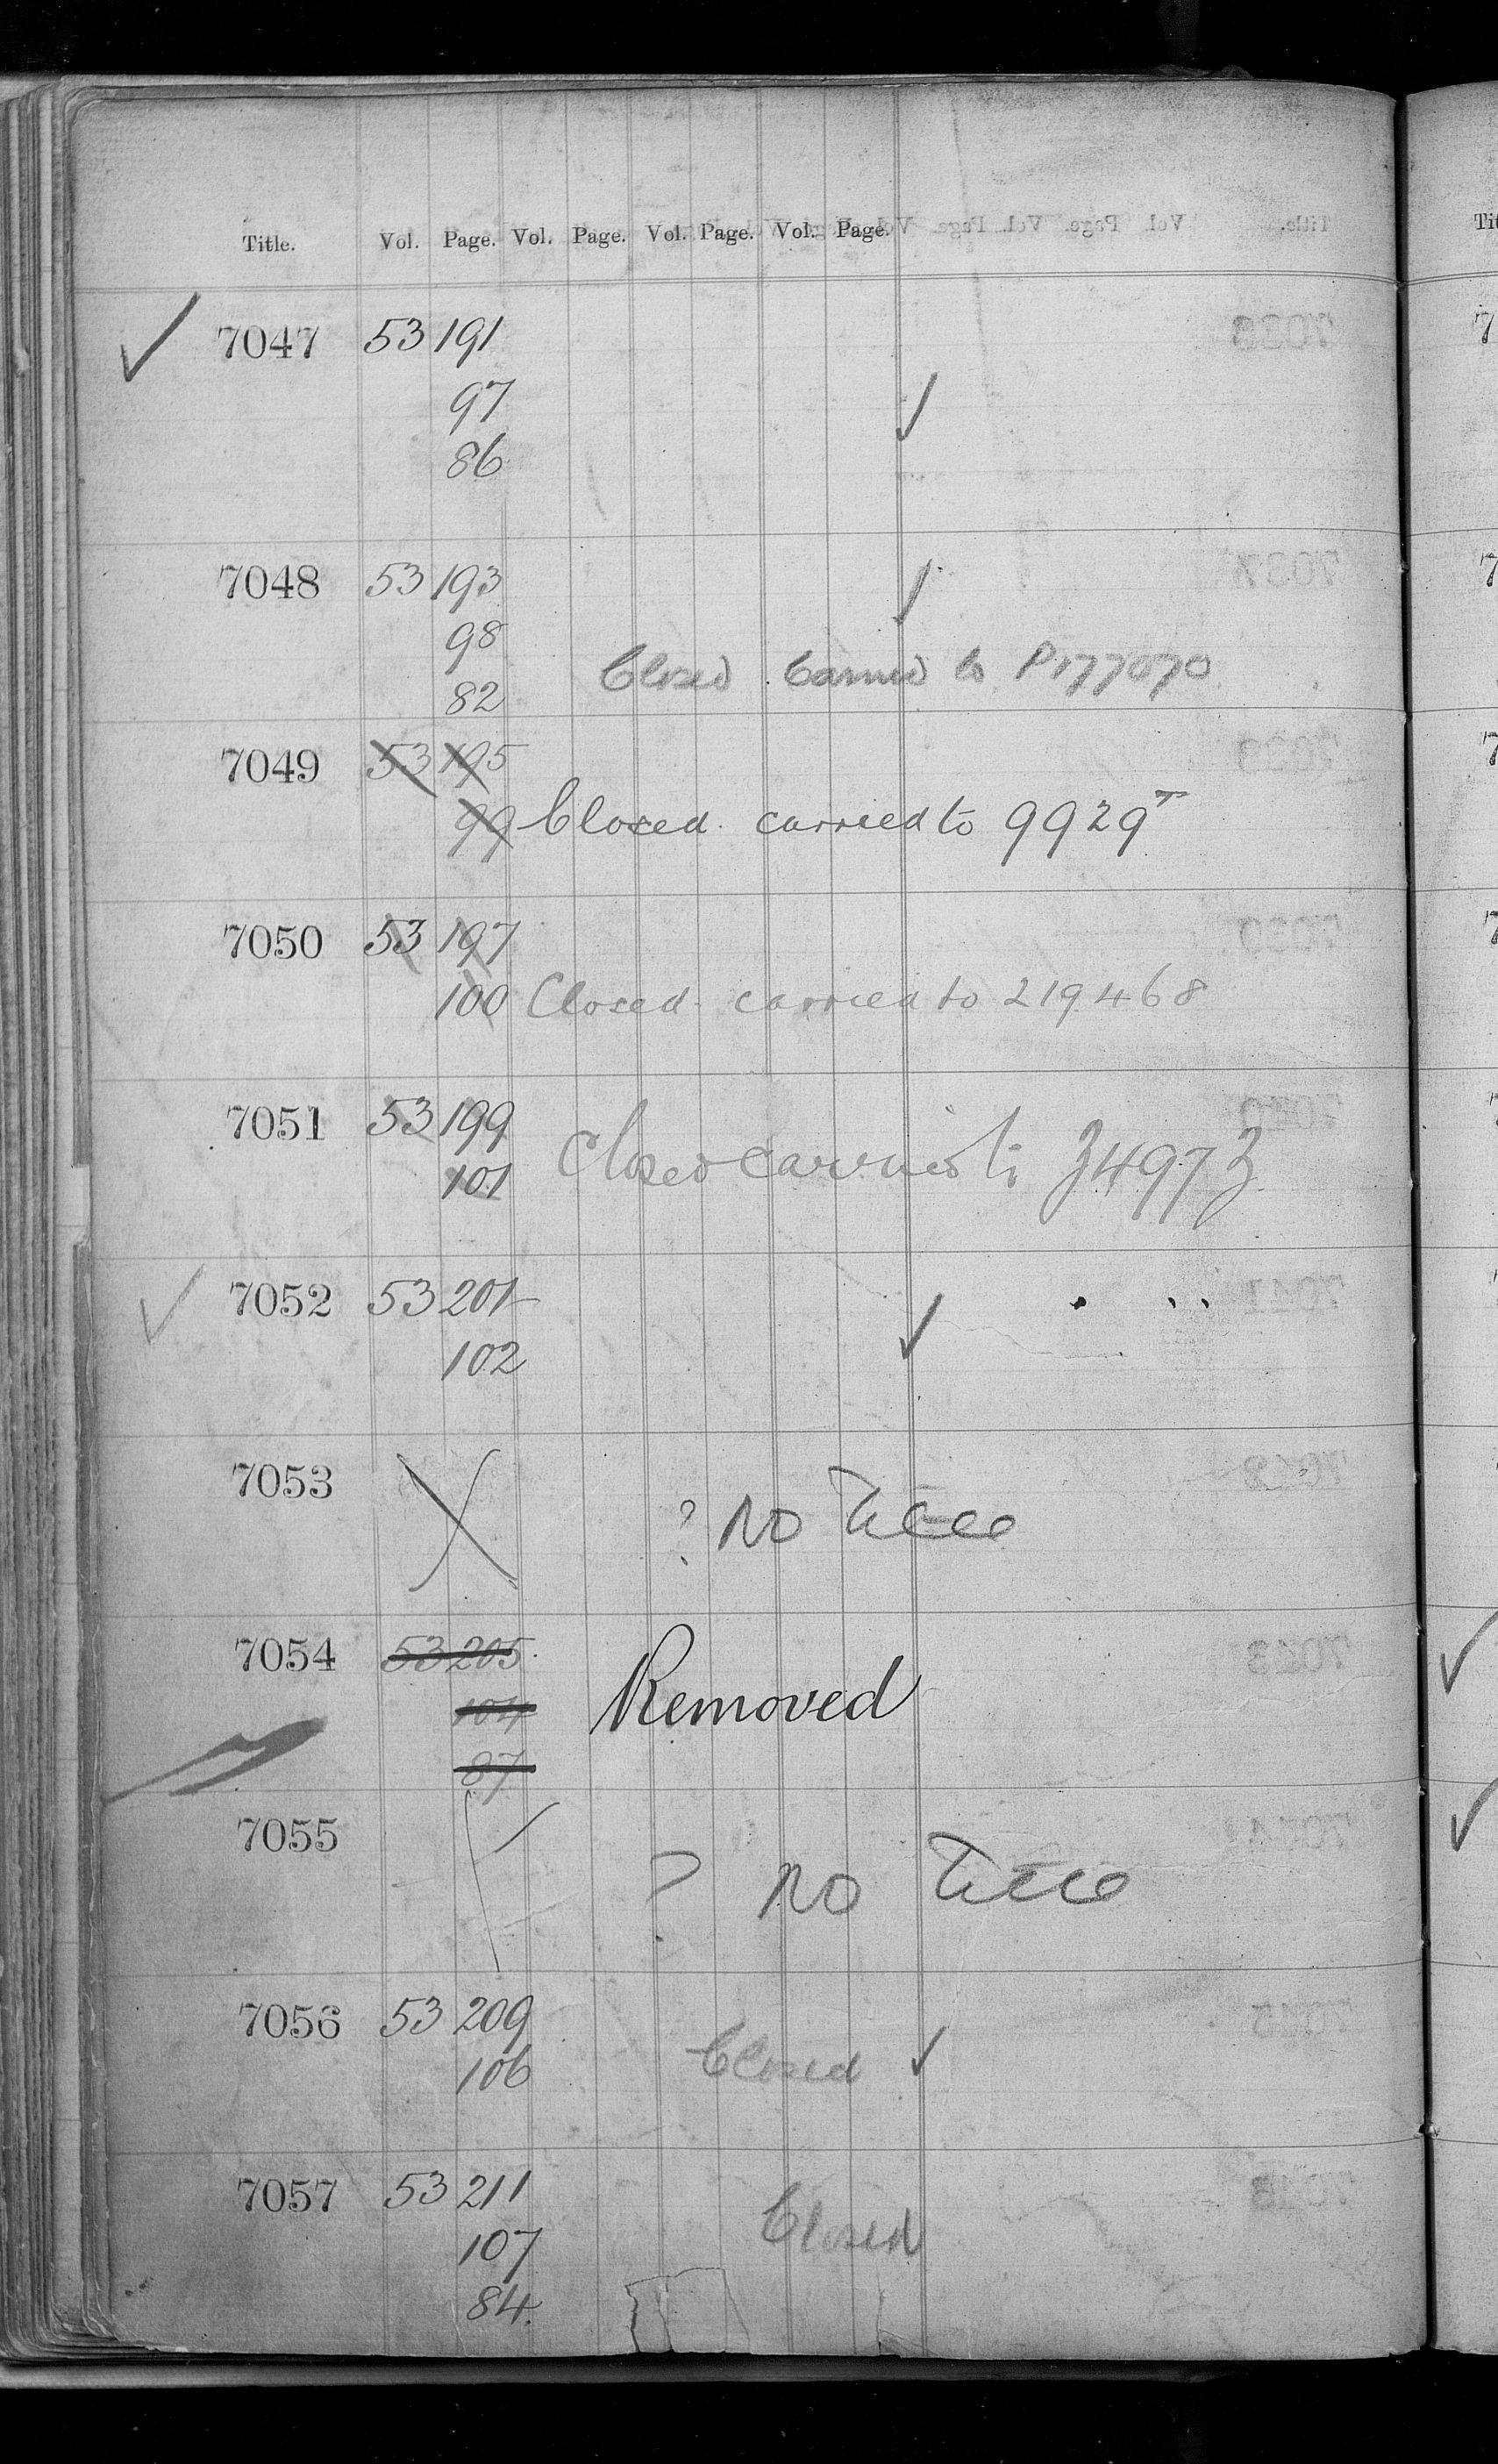 Title. Vol. Page. Vol. Page. Vol. Page. Vol. Page.
7047 53 191
97
86
7048 53 193
98
82 Closed Carried to P177070
7049 53 195
99 Closed carried to 9929T
7050 53 197
100 Closed carried to 219468
7051 53 199
101 Closed carried to 34973
7052 53 201
102
7053 ? NO Title
7054 53 205
104 Removed
87
7055
? NO Title
7056 53 209
106 Closed
7057 53 211
107 Closed
84